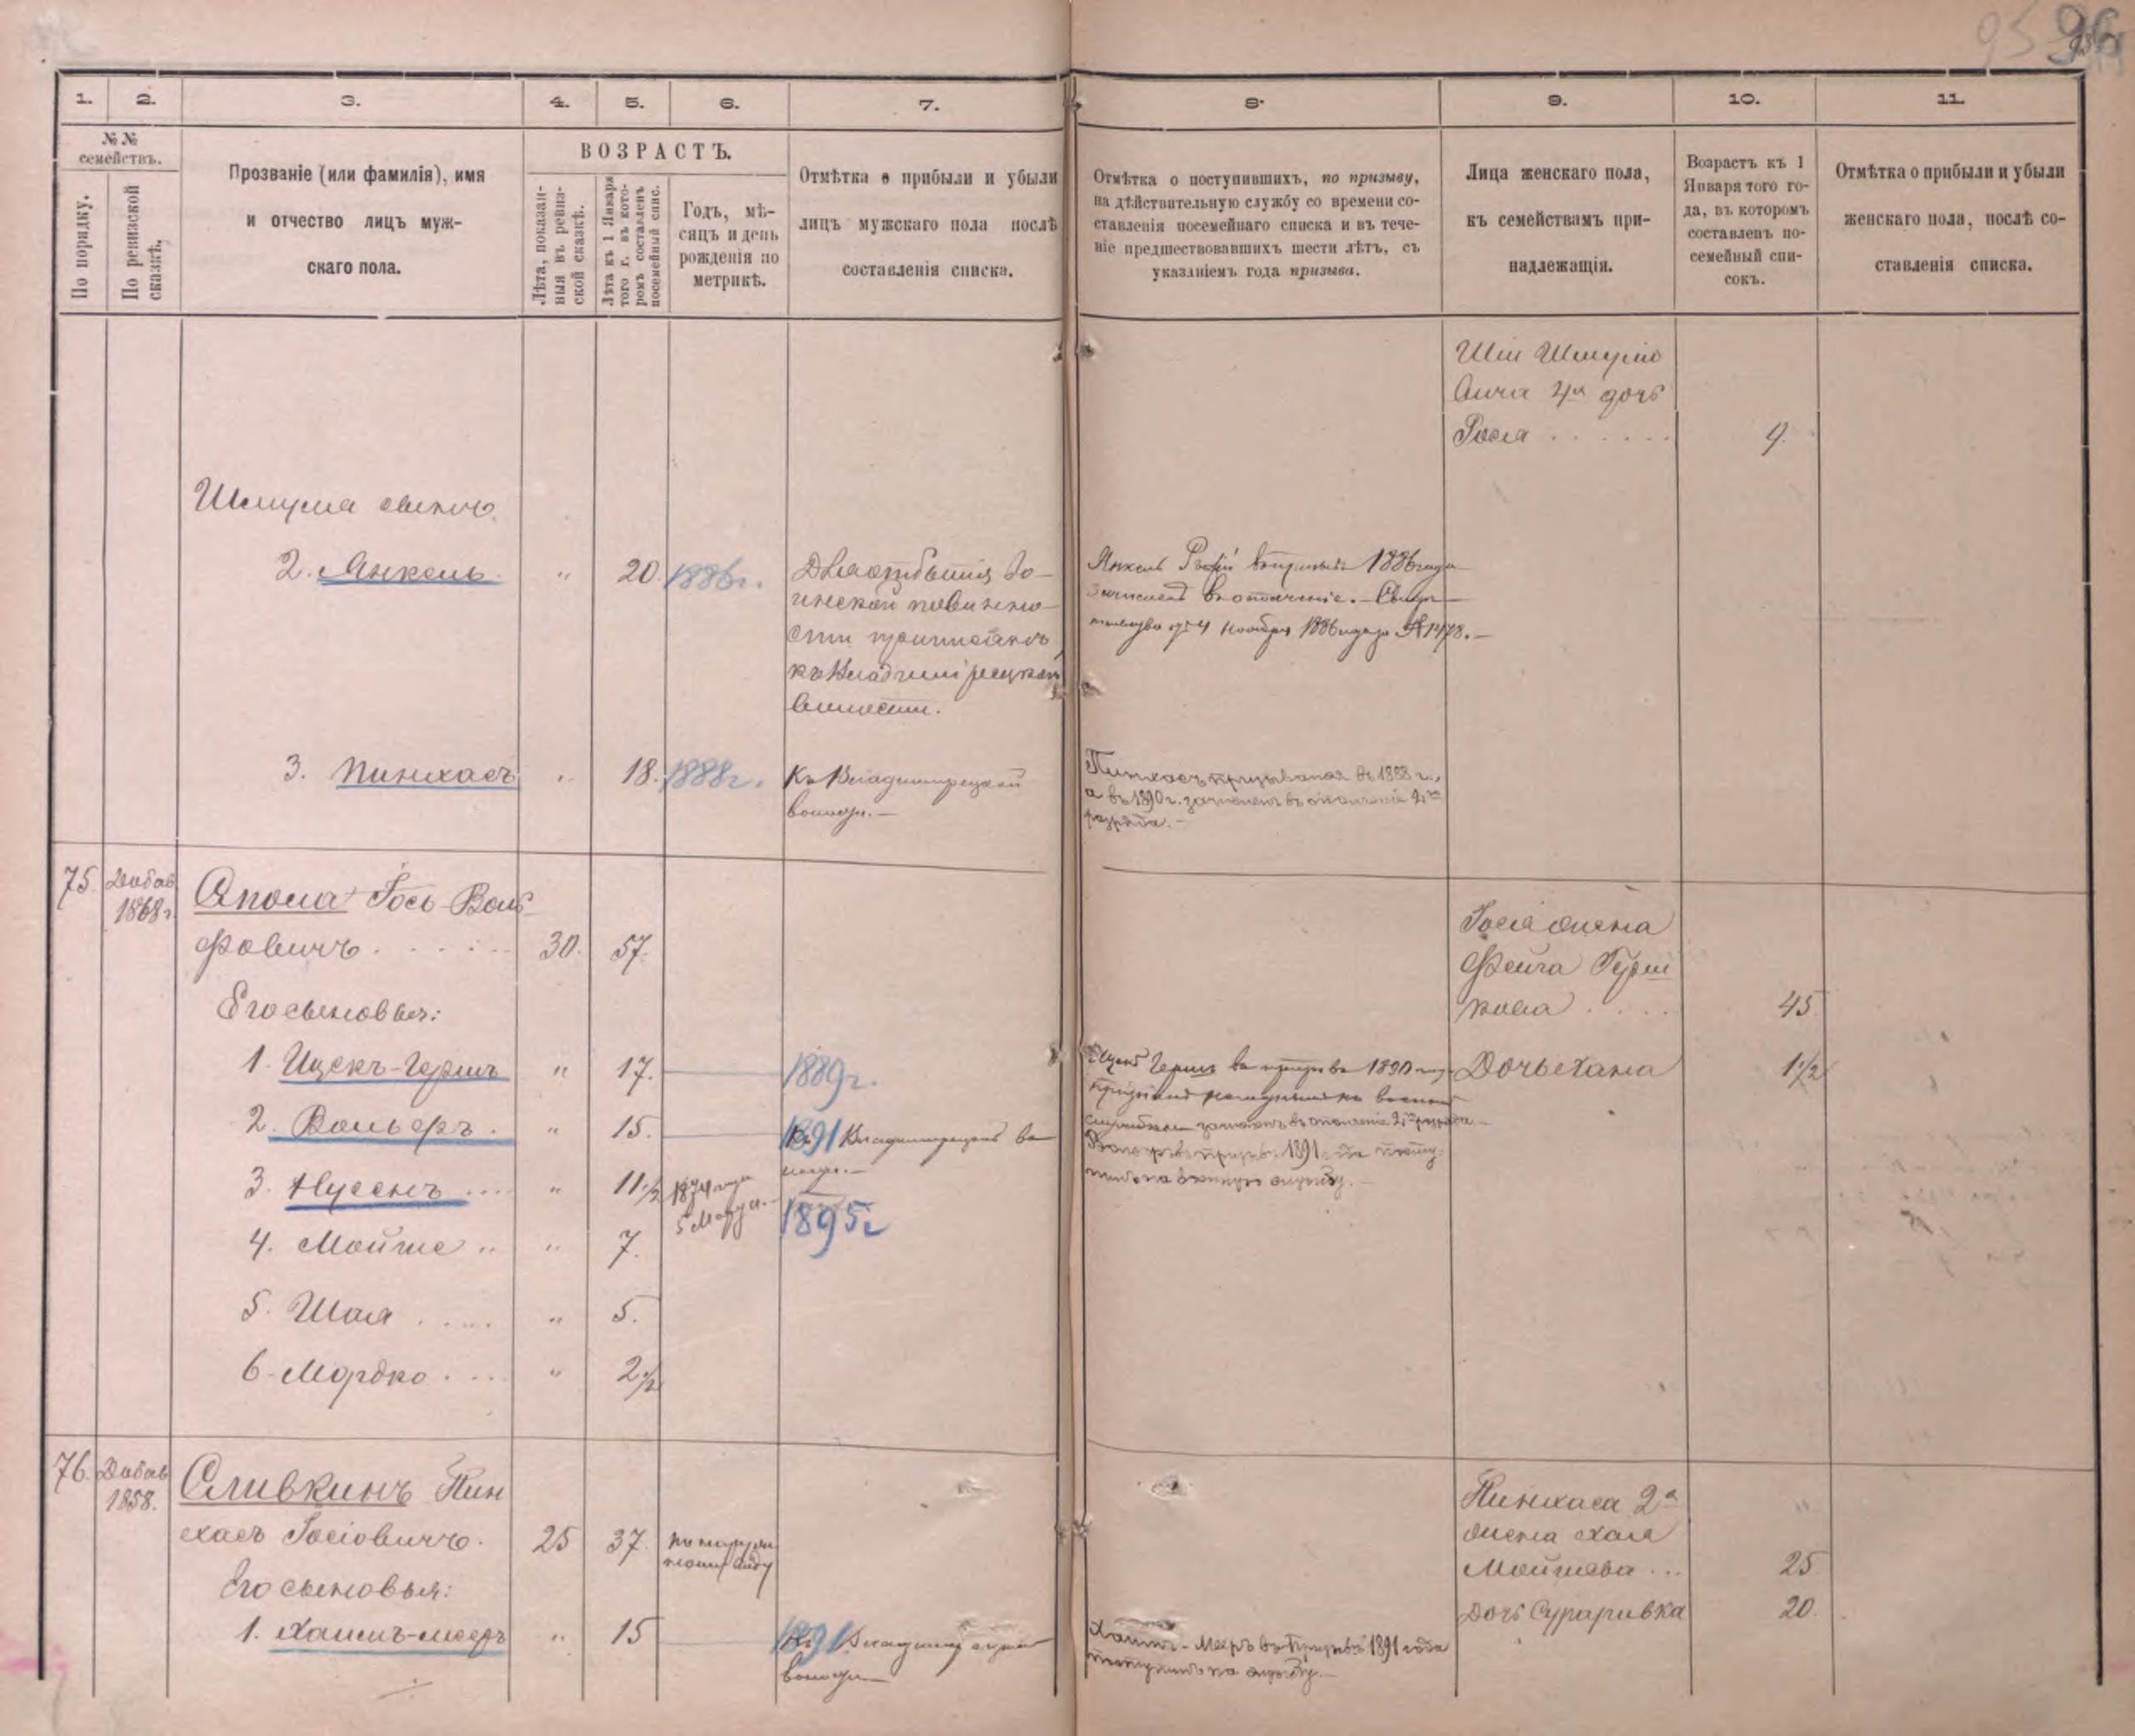 95 96
1. 2. 3. 4. 5. 6. 7. 8. 9. 10. 11.
№№ семействъ.
По порядку.
По ревизской сказкѣ.
Прозваніе (или фамилія), имя
и отчество лицъ муж-
скаго пола.
ВОЗРАСТЪ.
Лѣта, показан-
ныя въ ревиз-
ской сказкѣ.
Лѣта къ 1 Января
того г. въ кото-
ромъ составленъ
посемейный спис.
Годъ, мѣ-
сяцъ и день
рожденія по
метрикѣ.
Отмѣтка о прибыли и убыли
лицъ мужскаго пола послѣ
составленія списка.
Отмѣтка о поступившихъ, по призыву,
на дѣйствительную службу со времени со-
ставленія посемейнаго списка и въ тече-
ніе предшествовавшихъ шести лѣтъ, съ
указаніемъ года призыва.
Лица женскаго пола,
къ семействамъ при-
надлежащія.
Возрастъ къ 1
Января того го-
да, въ которомъ
составленъ по-
семейный спи-
сокъ.
Отмѣтка о прибыли и убыли
женскаго пола, послѣ со-
ставленія списка.
4я дочь
Рося . . . . . . 9.
Шмуля сынъ
2. Янкель " 20. 1886г.
Для отбытія во-
инской повинно-
сти приписанъ
къ Владимірецкой
волости.
Янкель въ призывъ 1886 года
зачисленъ въ ополченіе. — Свидѣ-
тельство 4 Ноября 1886 года №1478. —
3. Пинхасъ " 18. 1888г.
Къ Владимірецкой
волости. —
Пинхасъ призывался въ 1888 г.,
а въ 1890 г. зачисленъ въ ополченіе 2го
разряда. —
75. Добав 1868г.
Апола Іось Воль-
фовичъ . . . . . 30. 57.
Іося жена
Фейга Герш
кова . . . . 45
Его сыновья:
1. Ицекъ-Гершъ " 17. 1889г.
Ицекъ Гершъ въ призывъ 1890 г.
службѣ зачисленъ въ ополченіе 2го разряда —
Дочь Хана 1 1/2
2. Вольфъ. " 15. 1891
Къ Владимірецкой во
лости. —
Вольфъ въ призывъ 1891 года посту
пилъ на военную службу. —
3. Нусенъ ... " 11 1/2 1874 года
5 Марта. —
1895г
4. Мойше .. " 7.
5. Шая . . . . . " 5.
6. Мордко . . . " 2 1/2
76. Добав 1858.
Сливкинъ Пин
хасъ Іосіовичъ. 25 37. по наруж
ному виду
Пинхаса 2я "
жена Хая
Мойшева ... 25
Дочь Сураривка 20.
Его сыновья:
1. Хаимъ-Мееръ " 15 1891.
Къ Владимірецкой
волости —
Хаимъ-Мееръ въ призывъ 1891 года
поступилъ на службу. —